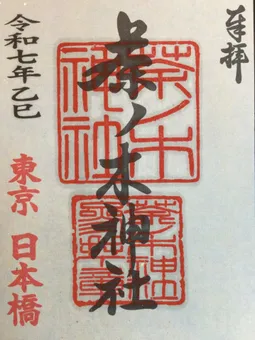 奉拝
茶ノ木神社
令和七年乙巳
東京 日本橋
茶ノ木
神社